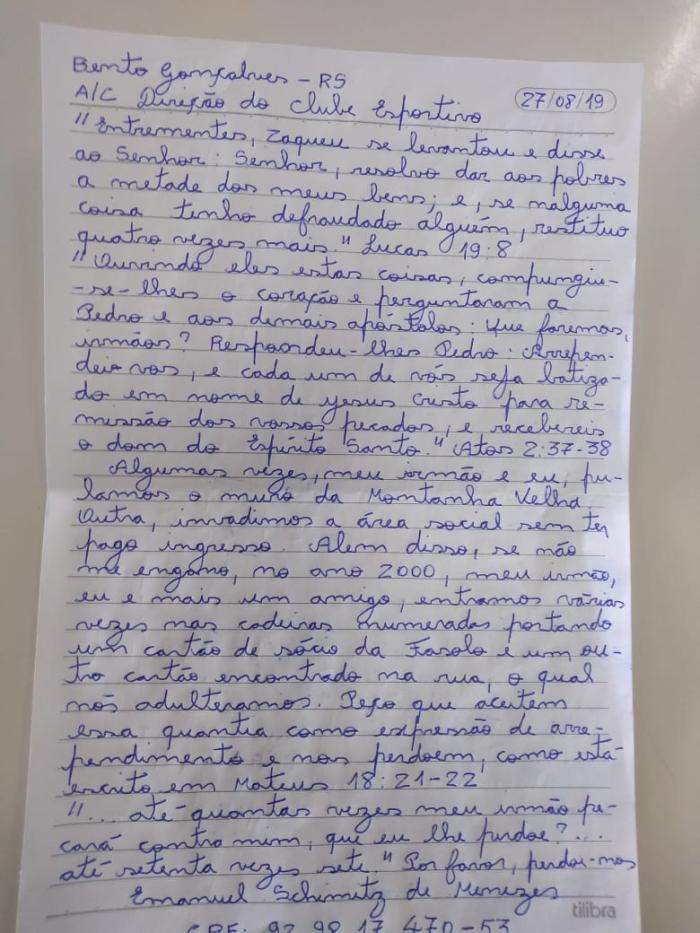 Bento Gonçalves - RS
27/08/19
A/C Direção do Clube Esportivo
"Entrementes, Zaqueu se levantou e disse
ao Senhor: Senhor, resolvo dar aos pobres
a metade dos meus bens; e, se nalguma
coisa tenho defraudado alguém, restituo
quatro vezes mais." Lucas 19:8
"Ouvindo eles estas coisas, compungiu-
-se-lhes o coração e perguntaram a
Pedro e aos demais apóstolos: Que faremos,
irmãos? Respondeu-lhes Pedro: Arrepen-
dei-vos, e cada um de vós seja batiza-
do em nome de Jesus Cristo para re-
missão dos vossos pecados, e recebereis
o dom do Espírito Santo." Atos 2:37-38
Algumas vezes, meu irmão e eu, pu-
lamos o muro da Montanha Velha.
Outra, invadimos a área social sem ter
pago ingresso. Alem disso, se não
me engano, no ano 2000, meu irmão,
eu e mais um amigo, entramos várias
vezes nas cadeiras numeradas portando
um cartão de sócio da Fasolo e um ou-
tro cartão encontrado na rua, o qual
nós adulteramos. Peço que aceitem
essa quantia como expressão de arre-
pendimento e nos perdoem, como está
escrito em Mateus 18:21-22
"... até quantas vezes meu irmão pe-
cará contra mim, que eu lhe perdoe?...
até setenta vezes sete." Por favor, perdoe-nos
Emanuel Schimitz de Menezes
tilibra